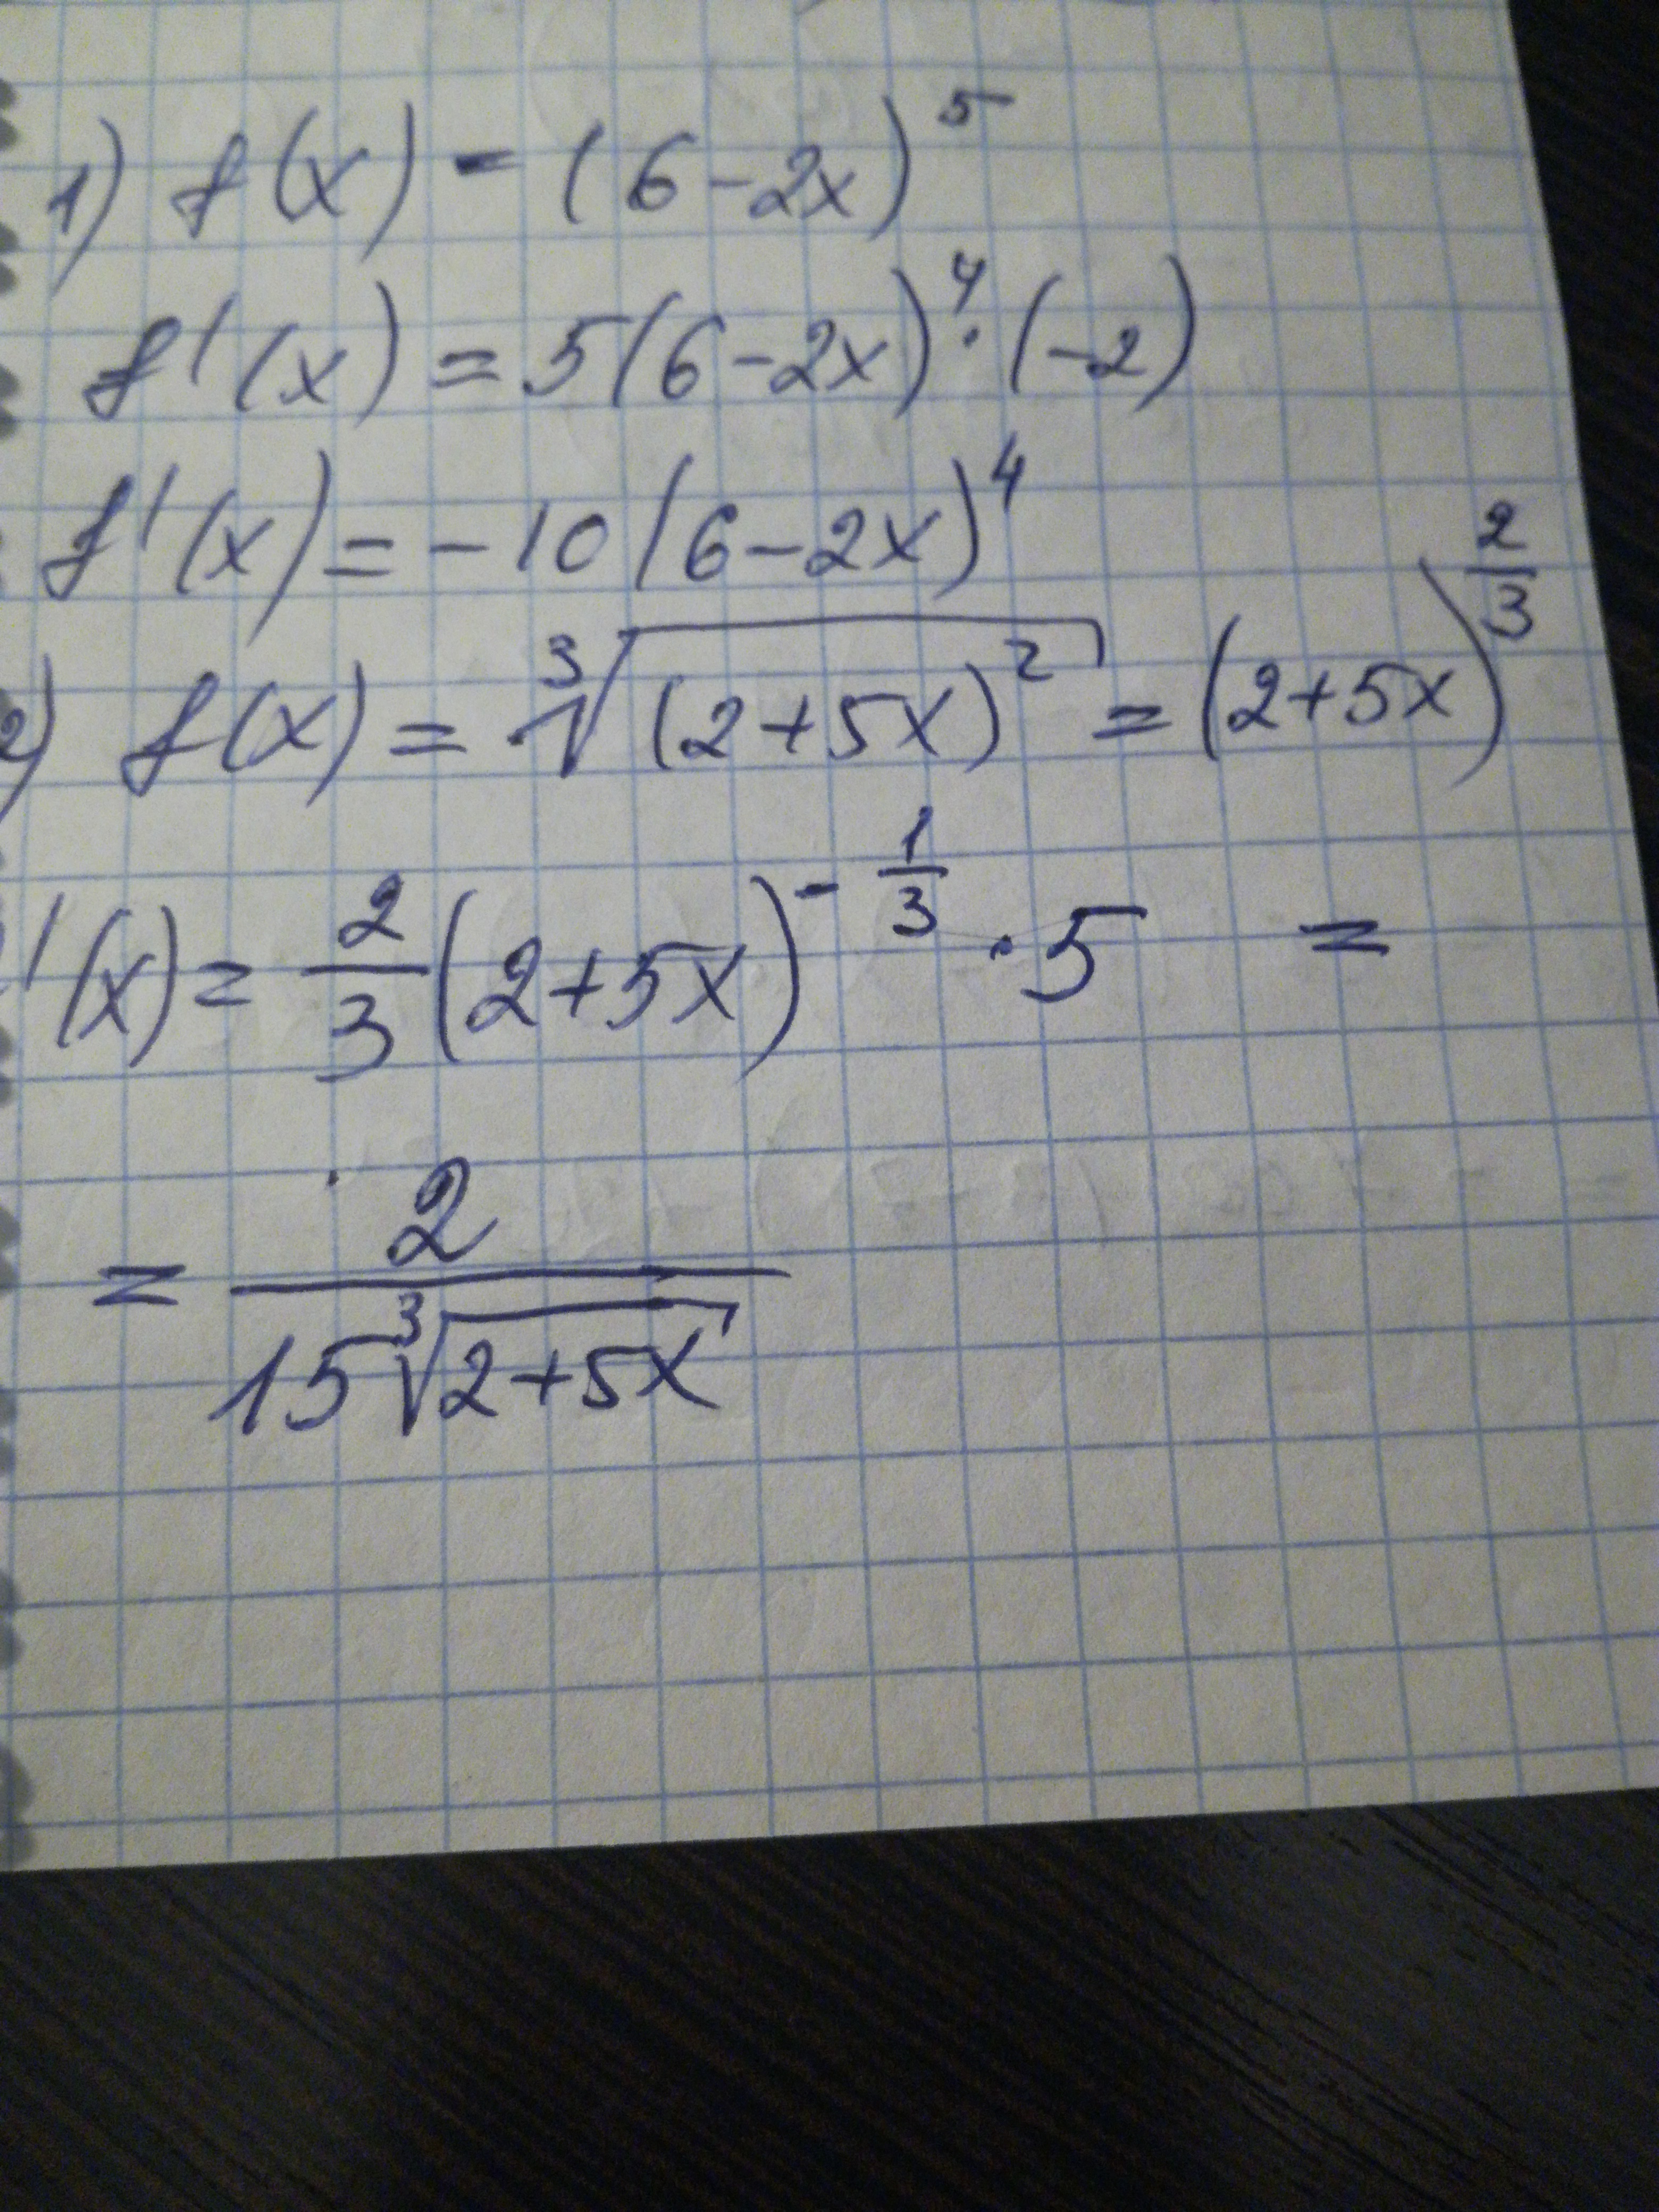 1) f(x) = (6-2x)⁵
f'(x) = 5(6-2x)⁴·(-2)
f'(x) = -10(6-2x)⁴
2) f(x) = ∛((2+5x)²) = (2+5x)^(2/3)
'(x) = 2/3 (2+5x)^(-1/3) · 5 =
= 2/(15∛(2+5x))